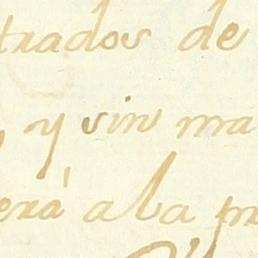 trados de
, y sin ma
erá a la pr